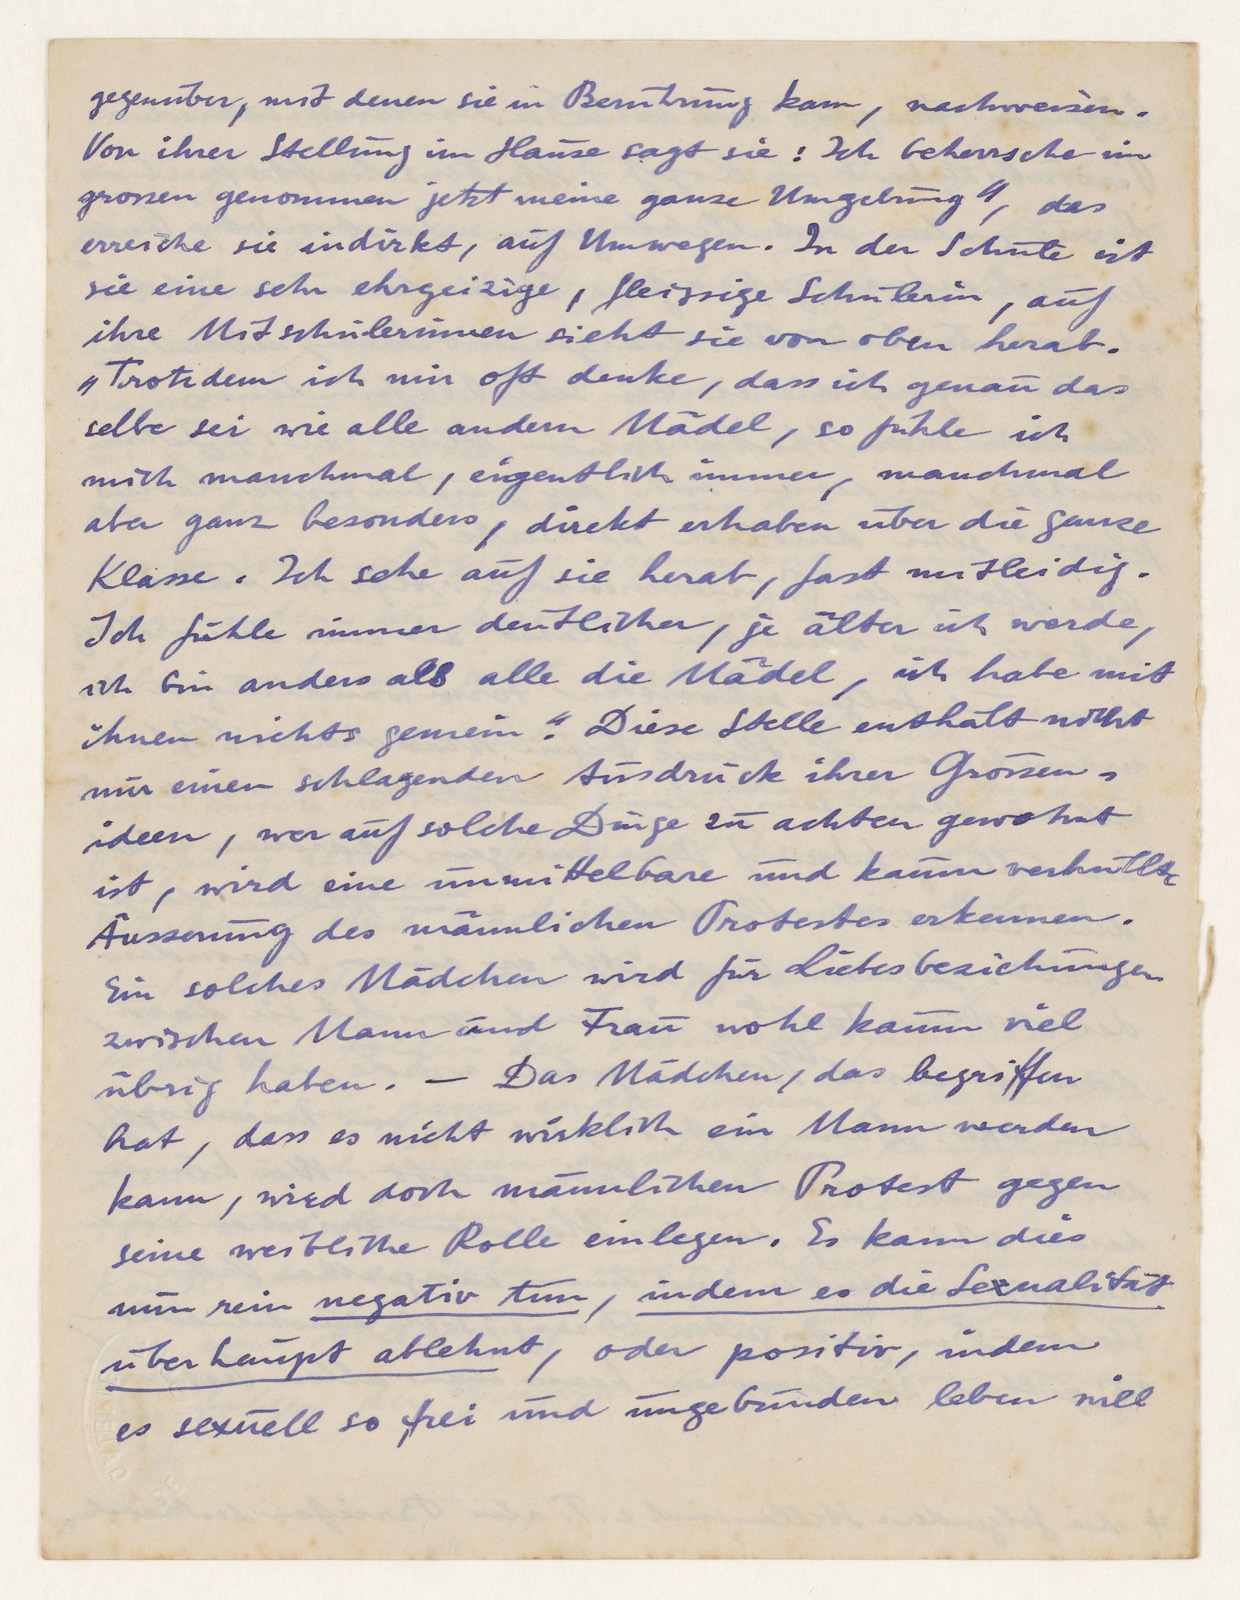 gegenüber, mit denen sie in Berührung kam, nachweisen.
Von ihrer Stellung im Hause sagt sie: Ich beherrsche im
grossen genommen jetzt meine ganze Umgebung", das
erreiche sie indirkt, auf Umwegen. In der Schule ist
sie eine sehr ehrgeizige, fleissige Schülerin, auf
ihre Mitschülerinnen sieht sie von oben herab.
"Trotzdem ich mir oft denke, dass ich genau das
selbe sei wie alle andern Mädel, so fühle ich
mich manchmal, eigentlich immer, manchmal
aber ganz besonders, direkt erhaben über die ganze
Klasse. Ich sehe auf sie herab, fast mitleidig.
Ich fühle immer deutlicher, je älter ich werde,
ich bin anders als alle die Mädel, ich habe mit
ihnen nichts gemein". Diese Stelle enthält nicht
nur einen schlagenden Ausdruck ihrer Grössen-
ideen, wer auf solche Dinge zu achten gewohnt
ist, wird eine unmittelbare und kaum verhüllte
Äusserung des männlichen Protestes erkennen.
Ein solches Mädchen wird für Liebesbeziehungen
zwischen Mann und Frau wohl kaum viel
übrig haben. — Das Mädchen, das begriffen
hat, dass es nicht wirklich ein Mann werden
kann, wird doch männlichen Protest gegen
seine weibliche Rolle einlegen. Es kann dies
nun rein negativ tun, indem es die Sexualität
überhaupt ablehnt, oder positiv, indem
es sexuell so frei und ungebunden leben will